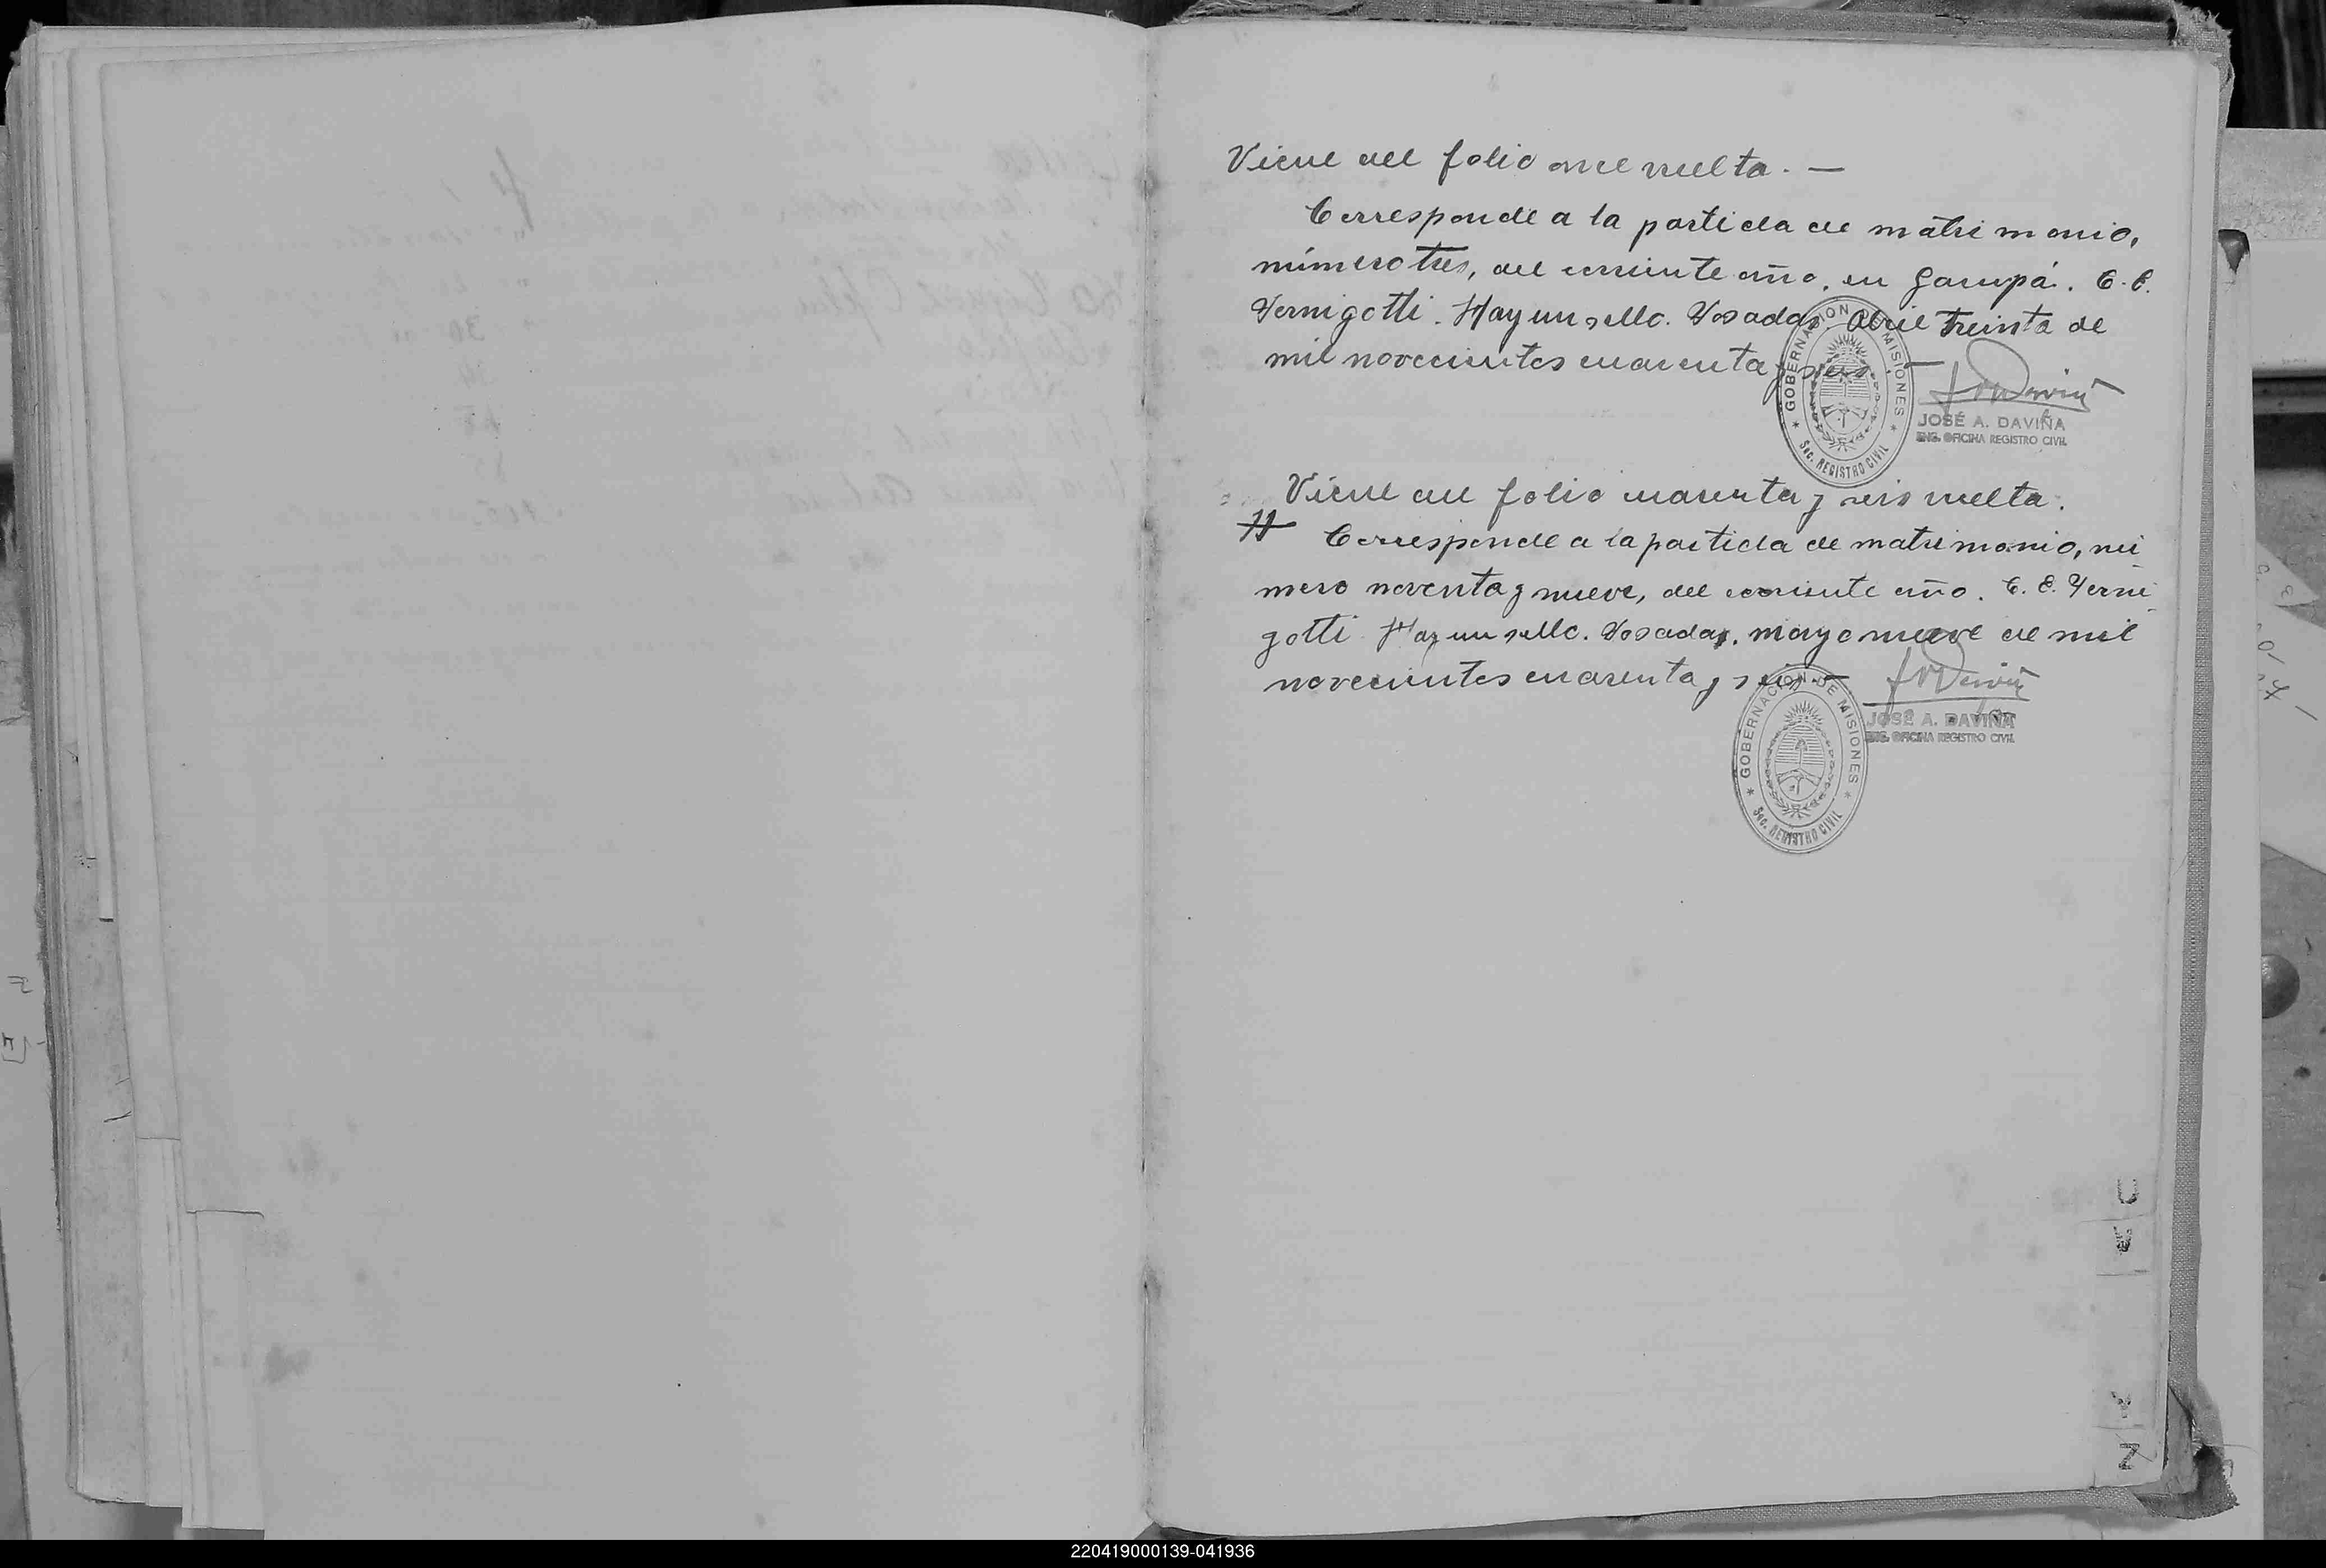 Viene del folio once vuelta. —
Corresponde a la partida de matrimonio,
número tres, del corriente año, en Garupá. C. E.
Vernigotti. Hay un sello. Posadas. Abril treinta de
mil novecientos cuarenta y seis. —
GOBERNACION DE MISIONES
Sec. REGISTRO CIVIL
JOSÉ A. DAVIÑA
ENC. OFICINA REGISTRO CIVIL
Viene del folio cuarenta y seis vuelta.
Corresponde a la partida de matrimonio, nú
mero noventa y nueve, del corriente año. C. E. Verni
gotti. Hay un sello. Posadas, mayo nueve de mil
novecientos cuarenta y seis. —
GOBERNACION DE MISIONES
Sec. REGISTRO CIVIL
JOSÉ A. DAVIÑA
ENC. OFICINA REGISTRO CIVIL
U
Y
Z
220419000139-041936